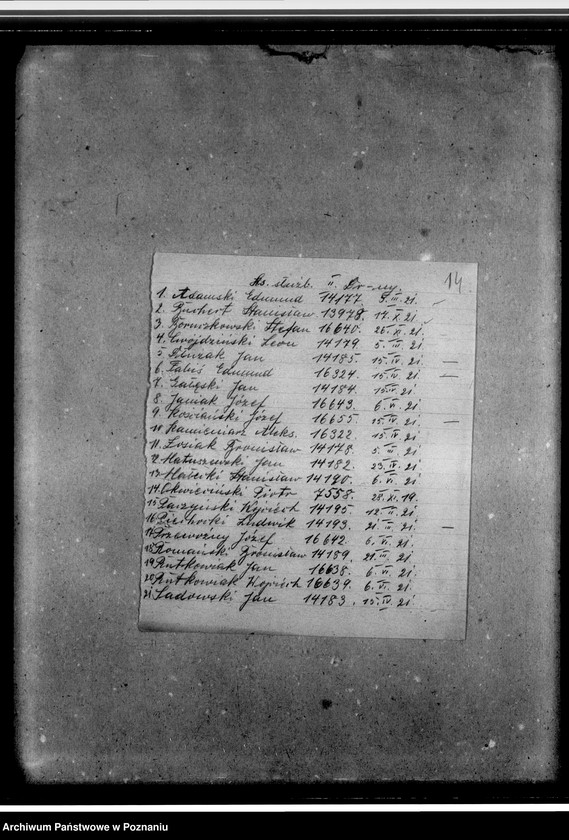 14
Ks. służb. II. Dr-ny.
1. Adamski Edmund 14177. 5.III.21.
2. Buchert Stanisław 13948 14.X.21.
3. Boruszkowski Stefan 16640. 26.XI.21.
4. Gwójdzinski Leon 14179 5.III.21.
5. Jan 14185 15.IV.21. —
6. Edmund 16324. 15.IV.21. —
7. Gałęski Jan 14184. 15.IV.21.
8. Janiak Józef 16643. 6.VI.21.
9. Kościański Józef 16655 15.IV.21. —
10. Kamieniarz Aleks. 16322. 15.IV.21.
11. Łosiak Bronisław 14178. 5.III.21.
12. Matuszewski Jan 14182. 23.IV.21.
13. Stanisław 14190. 6.VI.21.
14. Okwieciński Piotr 7558. 28.XI.19.
15. Paczyński Wojciech 14195 12.II.21.
16. Piechocki Ludwik 14193. 21.II.21. —
17. Przewozny Józef 16642. 6.VI.21.
18. Romański Bronisław 14189. 21.III.21.
19. Rutkowiak Jan 16638. 6.VI.21.
20. Rutkowiak Wojciech 16639. 6.VI.21.
21. Sadowski Jan 14183. 15.IV.21.
Archiwum Państwowe w Poznaniu